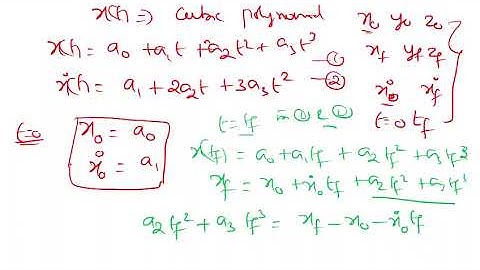 x(t) ⇒ cubic polynomial
x(t) = a₀ + a₁t + a₂t² + a₃t³ —①
ẋ(t) = a₁ + 2a₂t + 3a₃t² —②
x₀ y₀ z₀
x_f y_f z_f
ẋ₀ ẋ_f
t=0 t_f
t=0
x₀ = a₀
ẋ₀ = a₁
t = t_f in ① & ②
x(t_f) = a₀ + a₁t_f + a₂t_f² + a₃t_f³
x_f = x₀ + ẋ₀t_f + a₂t_f² + a₃t_f³
a₂t_f² + a₃t_f³ = x_f − x₀ − ẋ₀t_f